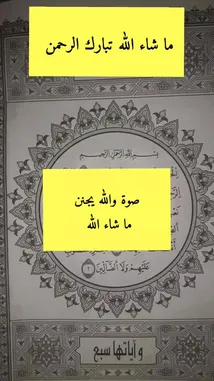 ما شاء الله تبارك الرحمن
بسم الله الرحمن الرحيم
صوة والله يجنن
ما شاء الله
عليهم ولا الضالين
وآياتها سبع